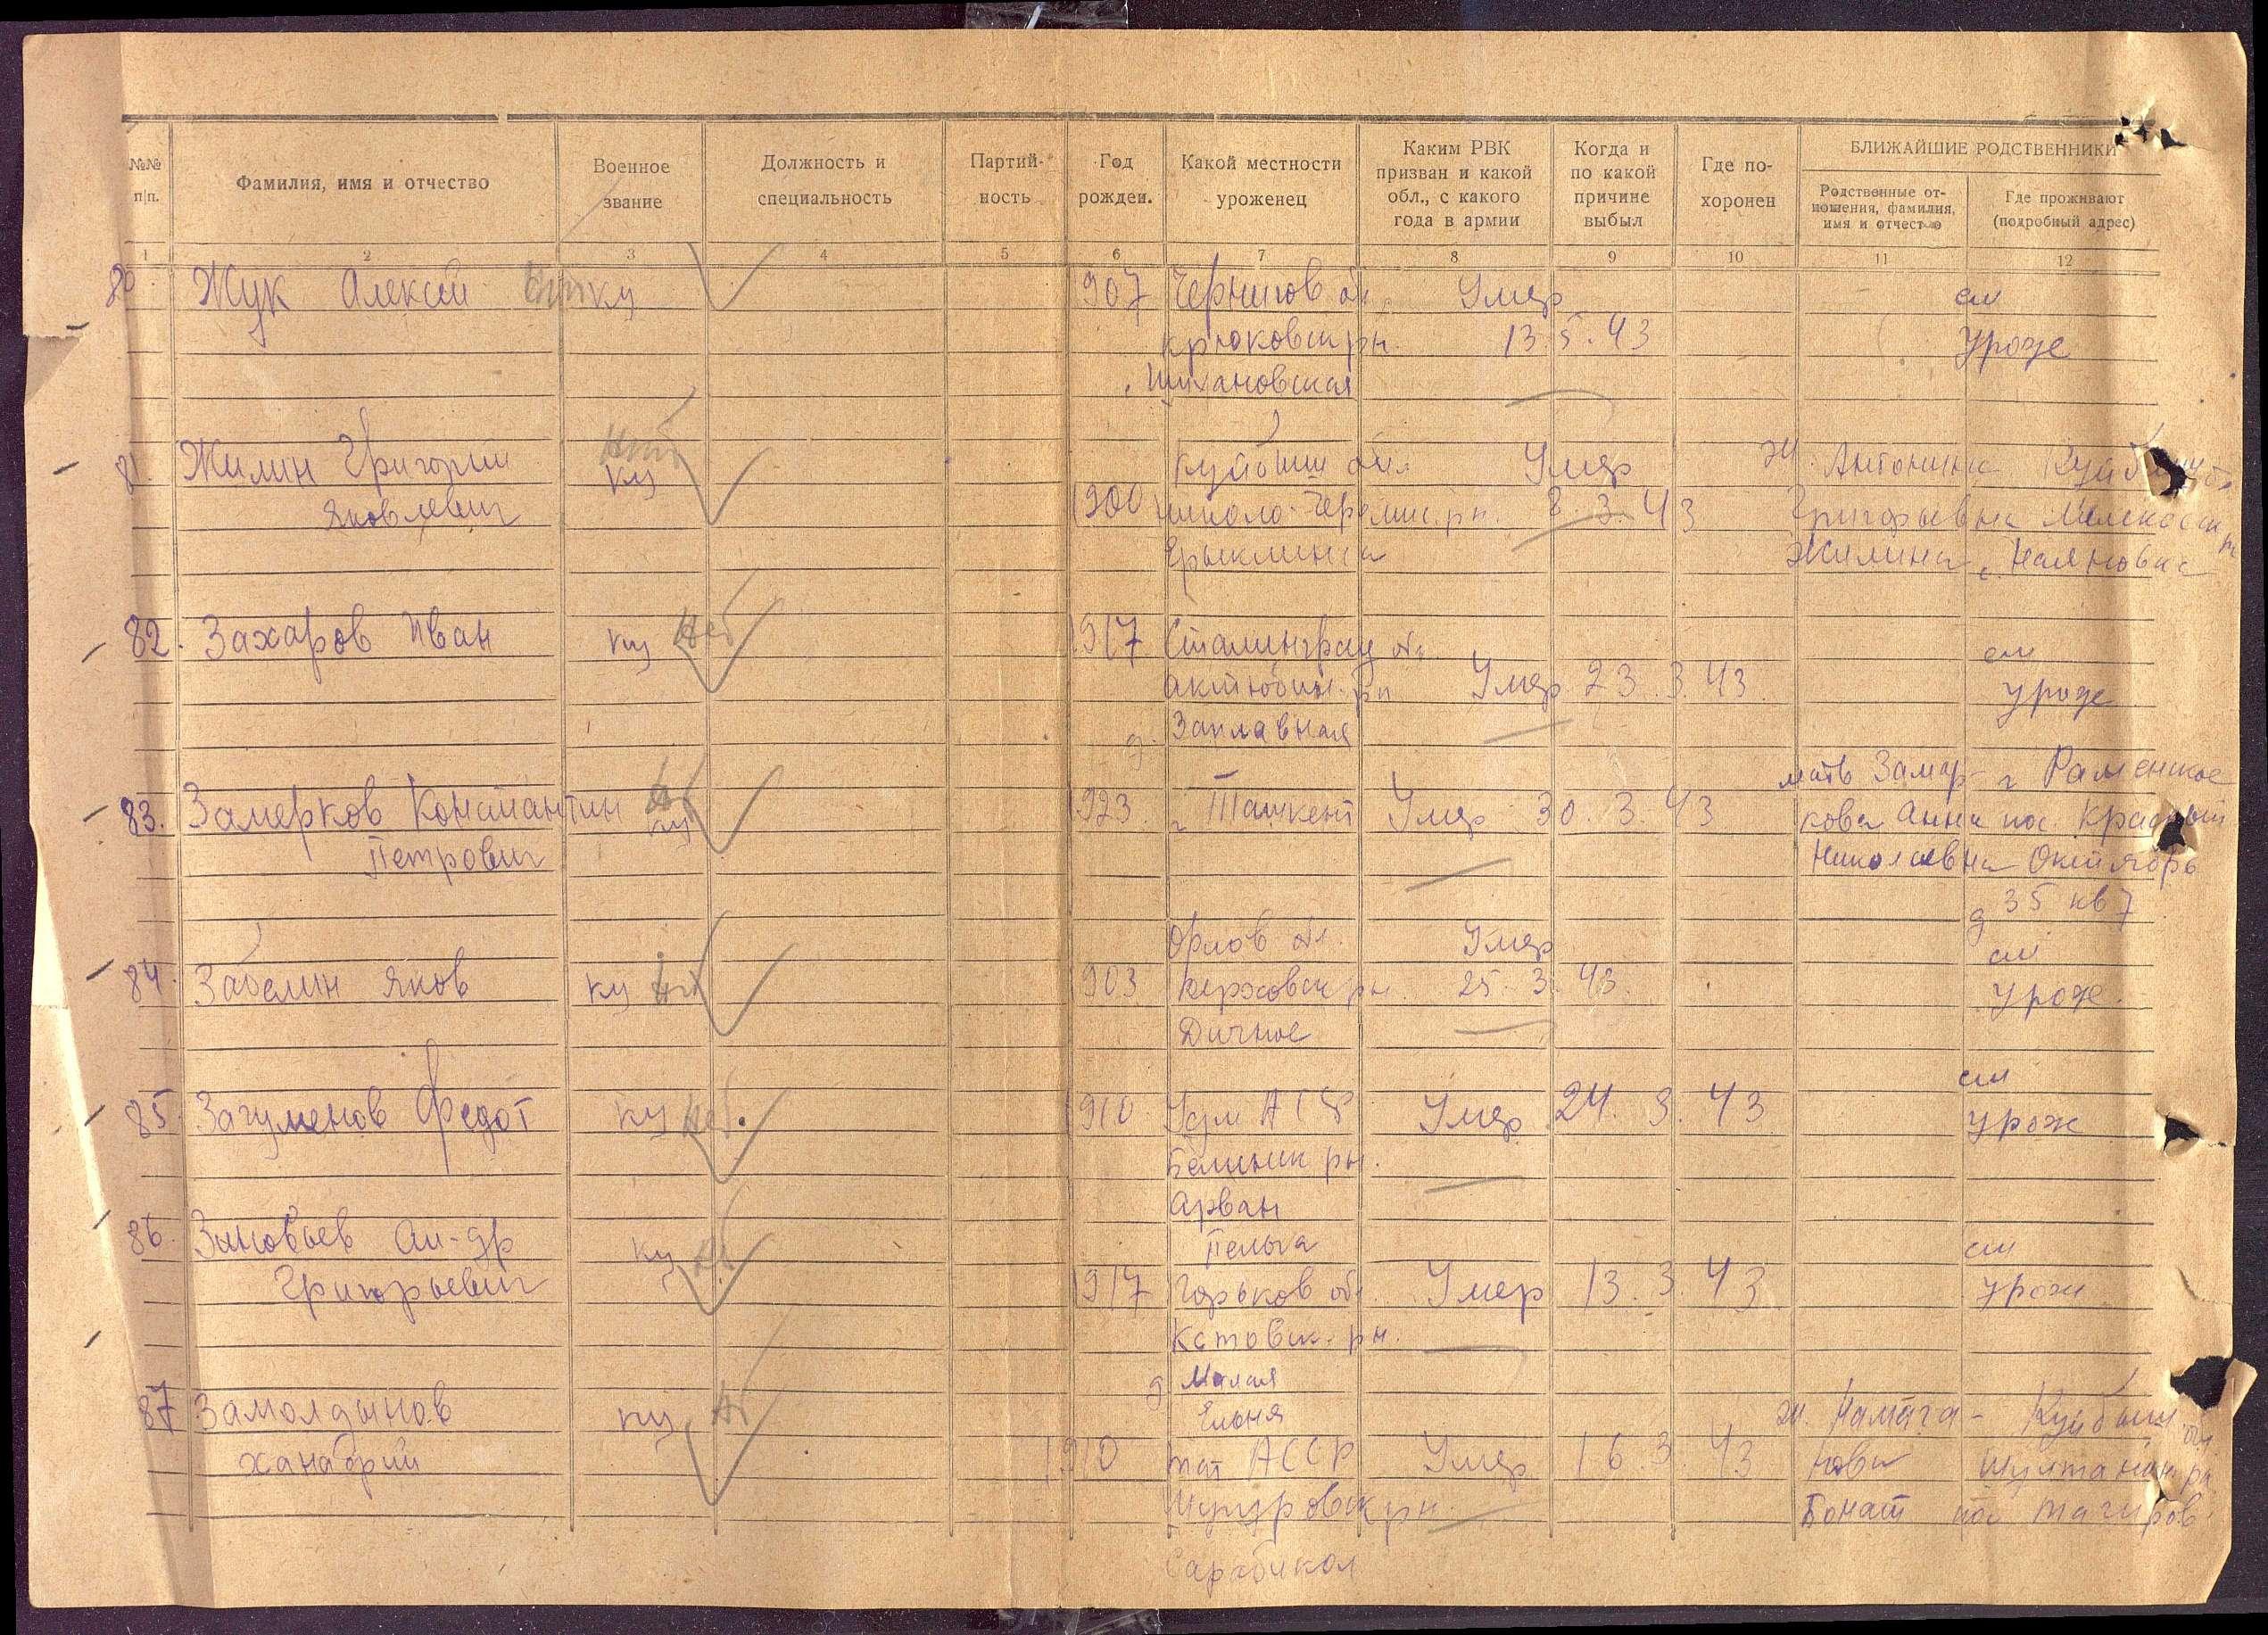 №№ п/п.
Фамилия, имя и отчество
Военное звание
Должность и специальность
Партий-
ность
Год рожден.
Какой местности уроженец
Каким РВК призван и какой обл., с какого года в армии
Когда и по какой причине выбыл
Где по-
хоронен
БЛИЖАЙШИЕ РОДСТВЕННИКИ
Родственные от-
ношения, фамилия, имя и отчество
Где проживают (подробный адрес)
1 2 3 4 5 6 7 8 9 10 11 12
80 Жук Алексей кц 1907 Чернигов обл. Умер см
13.5.43 уроже
81. Жилин Григорий кц Куйбыш обл. Умер ж. Антонина
Яковлевич 1900 рн. 8.3.43 Григорьевна Мелекесск
Ерыклинск Жилина с. Наяновка
82. Захаров Иван кц Нет 1917 Сталинград обл. см
рн Умер 23.3.43 уроже
д. Заплавная
мать Замер- г Раменское
83. Замерков Константин кц 1923 г Ташкент Умер 30.3.43 кова Анна пос. Красный
Петрович Николаевна Октябрь
д 35 кв 7
Орлов обл. Умер см
84. Забелин Яков кц 1903 рн. 25.3.43. уроже.
Дичное
см
85 Загуменов Федот кц Нет. 1910 Удм АССР Умер 24.3.43 урож
рн.
Арван
86. Зиновьев Ал-др кц Пельга см
Григорьевич 1917 Горьков обл. Умер 13.3.43 урож
Кстовск. рн.
д Малая
87 Замолдинов кц Ельня ж. Куйбыш. обл.
1910 Тат АССР Умер 16.3.43 нова рн
рн. пос Тагиров.